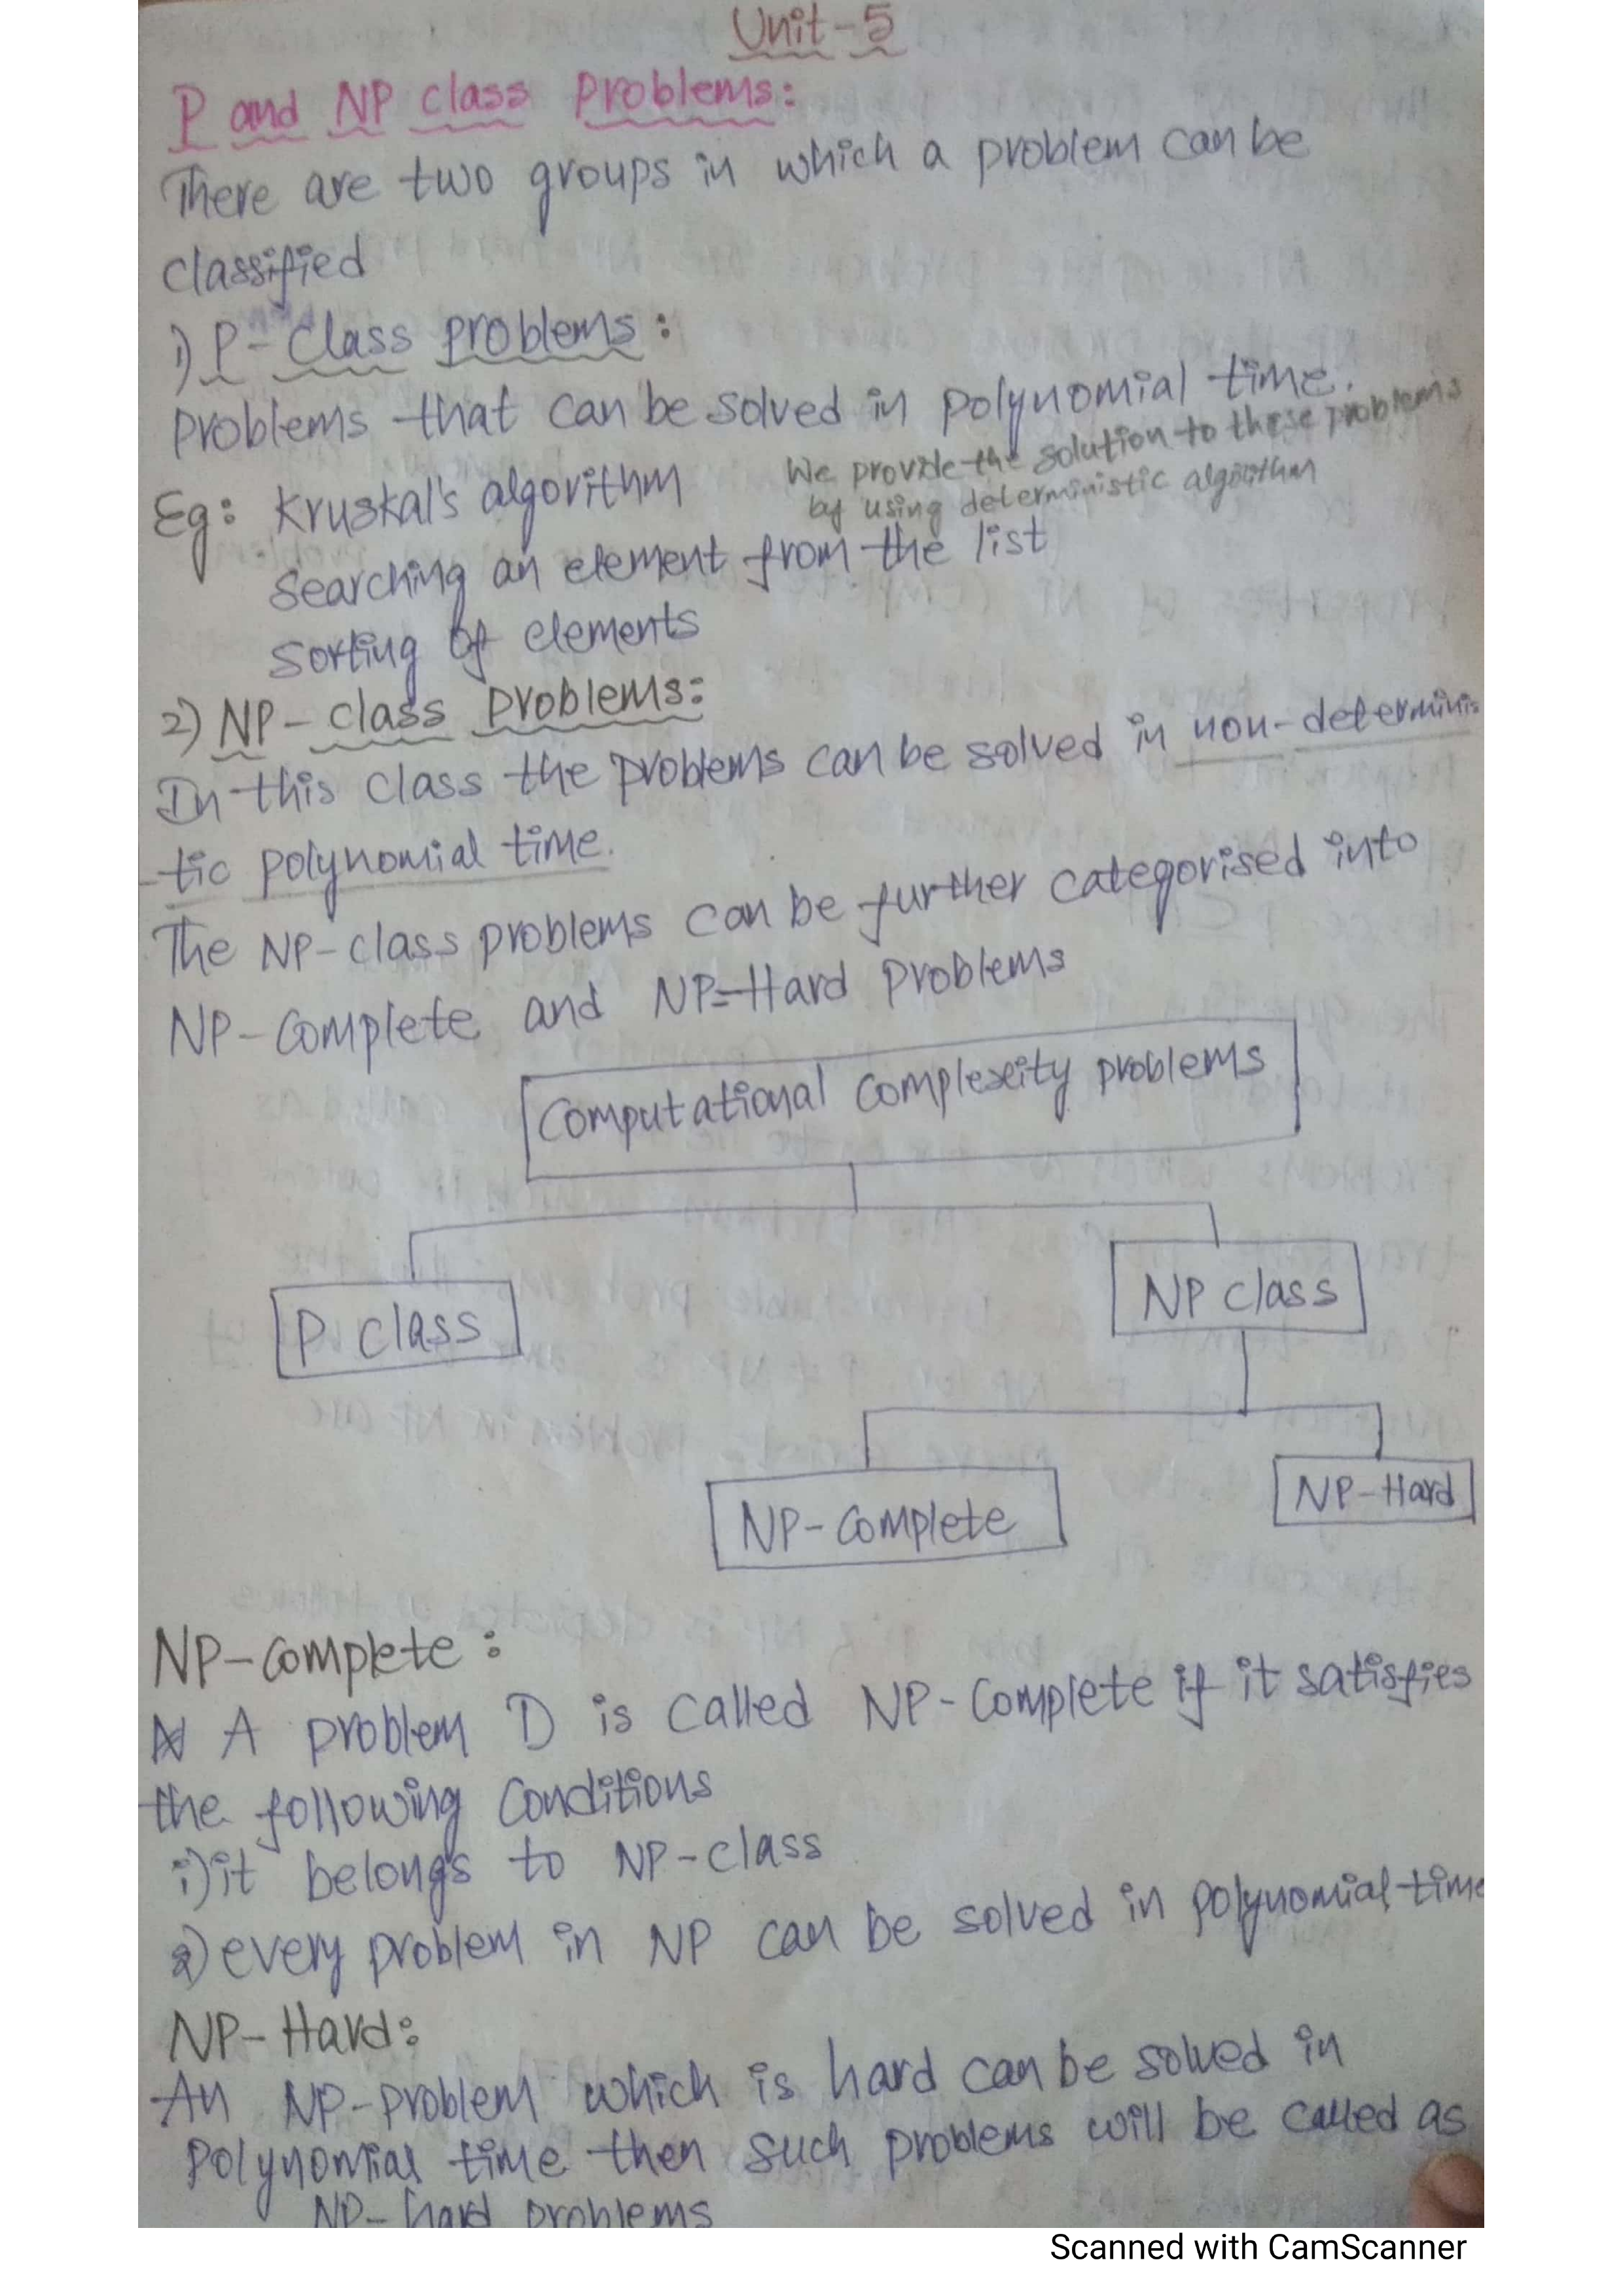 Unit-5
P and NP class problems:
There are two groups in which a problem can be
classified
1) P-class problems:
problems that can be solved in polynomial time.
We provide the solution to these problems
by using deterministic algorithm
Eg: Kruskal's algorithm
searching an element from the list
sorting of elements
2) NP-class problems:
In this class the problems can be solved in non-determinis
-tic polynomial time.
The NP-class problems can be further categorised into
NP-Complete and NP-Hard problems
Computational complexity problems
P class
NP class
NP-Complete
NP-Hard
NP-Complete:
A problem D is called NP-Complete if it satisfies
the following conditions
1) it belongs to NP-class
2) every problem in NP can be solved in polynomial time
NP-Hard:
An NP-problem which is hard can be solved in
polynomial time then such problems will be called as
NP-hard problems
Scanned with CamScanner